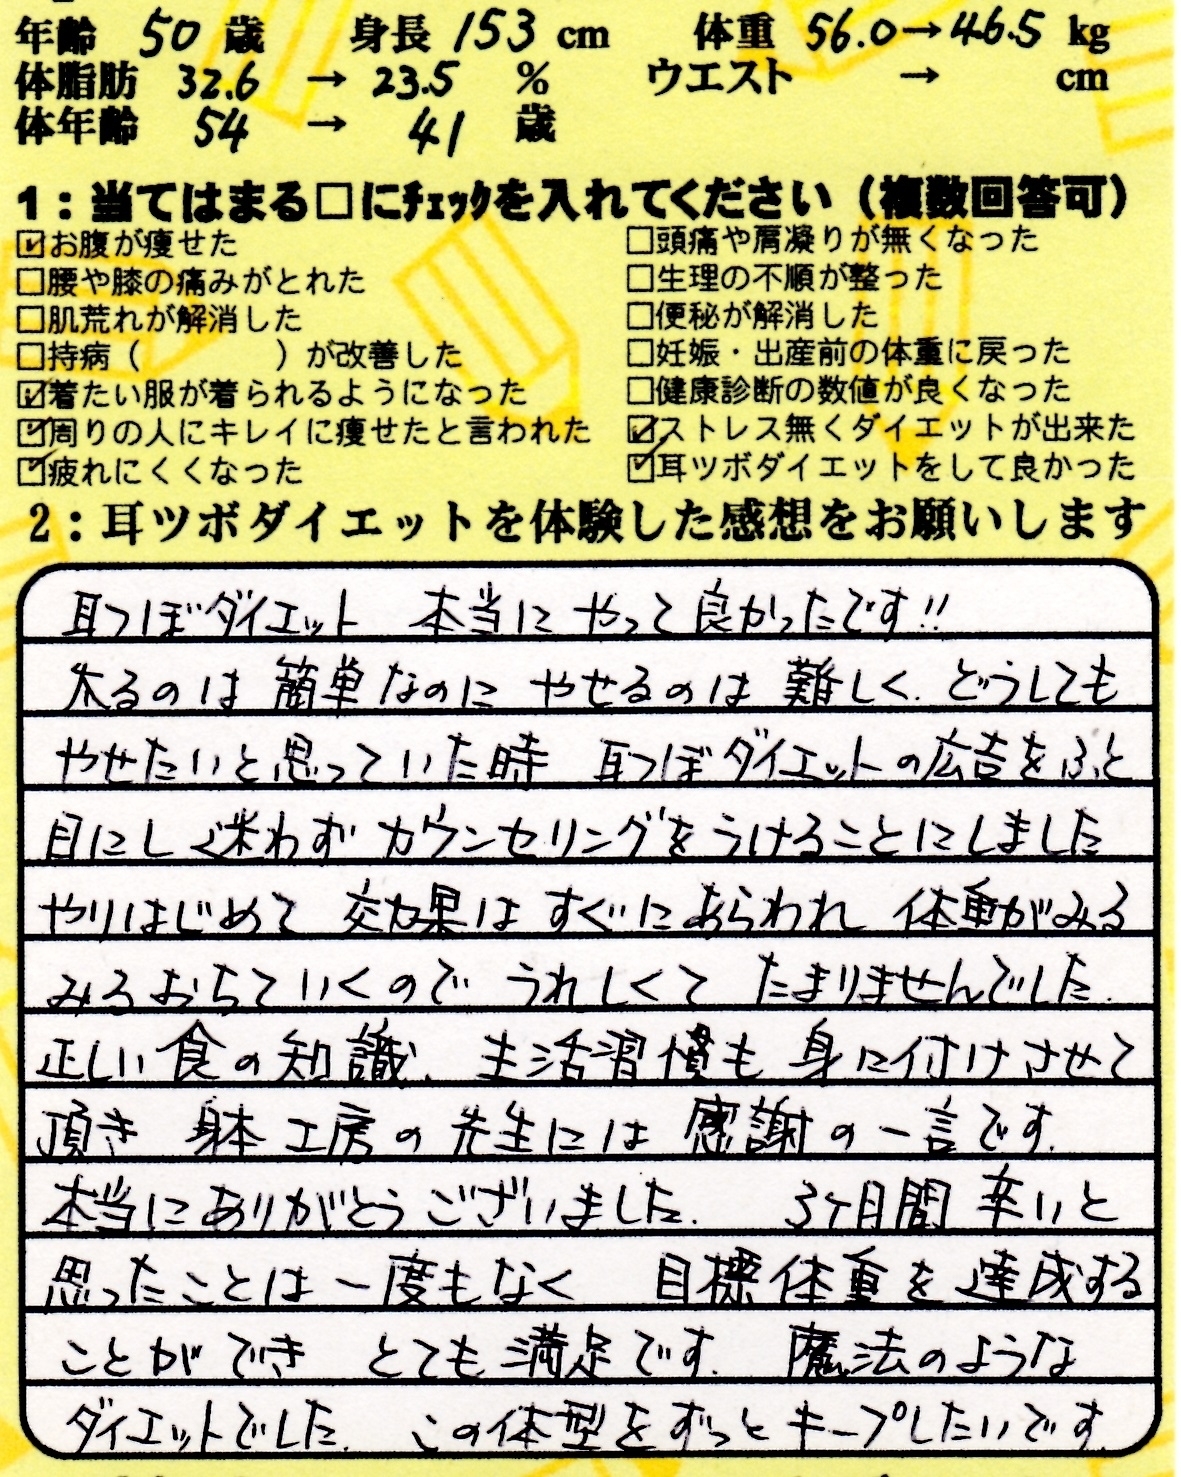 年齢 50 歳 身長 153 cm 体重 56.0→46.5 kg
体脂肪 32.6 → 23.5 % ウエスト → cm
体年齢 54 → 41 歳
1：当てはまる□にチェックを入れてください（複数回答可）
☑お腹が痩せた □頭痛や肩凝りが無くなった
□腰や膝の痛みがとれた □生理の不順が整った
□肌荒れが解消した □便秘が解消した
□持病（ ）が改善した □妊娠・出産前の体重に戻った
☑着たい服が着られるようになった □健康診断の数値が良くなった
☑周りの人にキレイに痩せたと言われた ☑ストレス無くダイエットが出来た
☑疲れにくくなった ☑耳ツボダイエットをして良かった
2：耳ツボダイエットを体験した感想をお願いします
耳つぼダイエット 本当に やって良かったです!!
太るのは 簡単なのに やせるのは 難しく、どうしても
やせたいと思っていた時 耳つぼダイエットの広告をふと
目にし 迷わず カウンセリングを うけることにしました
やりはじめて 効果は すぐにあらわれ 体重がみる
みるおちていくので うれしくて たまりませんでした.
正しい食の知識、生活習慣も 身に付けさせて
頂き 身体工房の先生には 感謝の一言です.
本当にありがとうございました. 3ヶ月間 辛いと
思ったことは一度もなく 目標体重を達成する
ことができ とても満足です. 魔法のような
ダイエットでした. この体型をずっとキープしたいです.